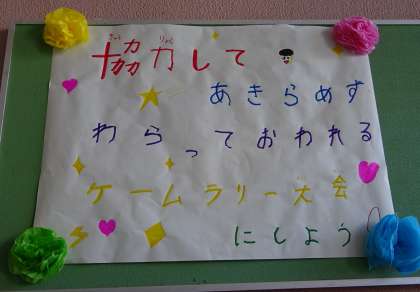 協力して
きょう りょく
あきらめず
わらっておわれる
ゲームラリー大会
にしよう